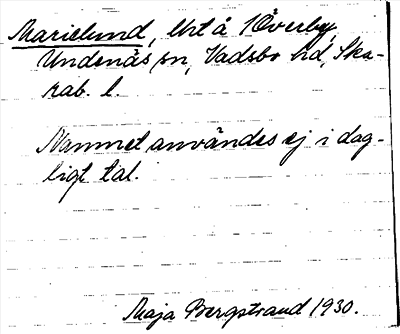 Marielund, lht å 1 Överby,
Undenäs sn, Vadsbo hd, Ska-
rab. l.
Namnet användes ej i dag-
ligt tal.
Maja Bergstrand 1930.